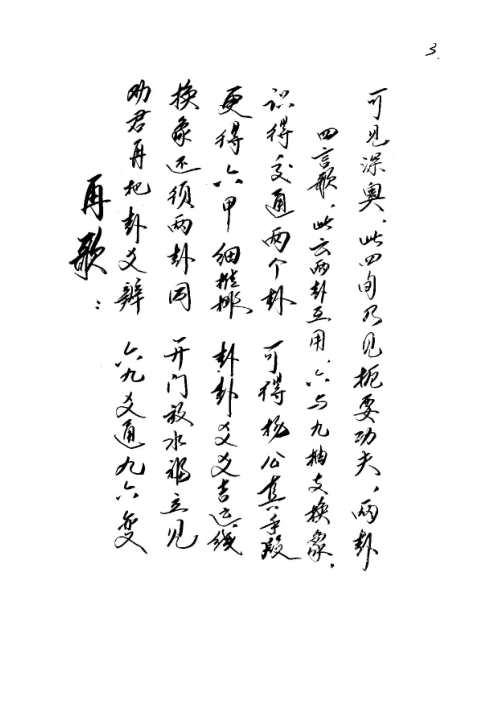 3.
可见深奥、此四句乃见扼要功夫、两卦
四言歌、此云两卦互用、六与九抽爻换象。
识得交通两个卦 可得杨公真手段
更得六甲细推排 卦卦爻爻吉线
换象还须两卦因 开门放水福立见
劝君再把卦爻辨 六九爻通九六变
再歌：